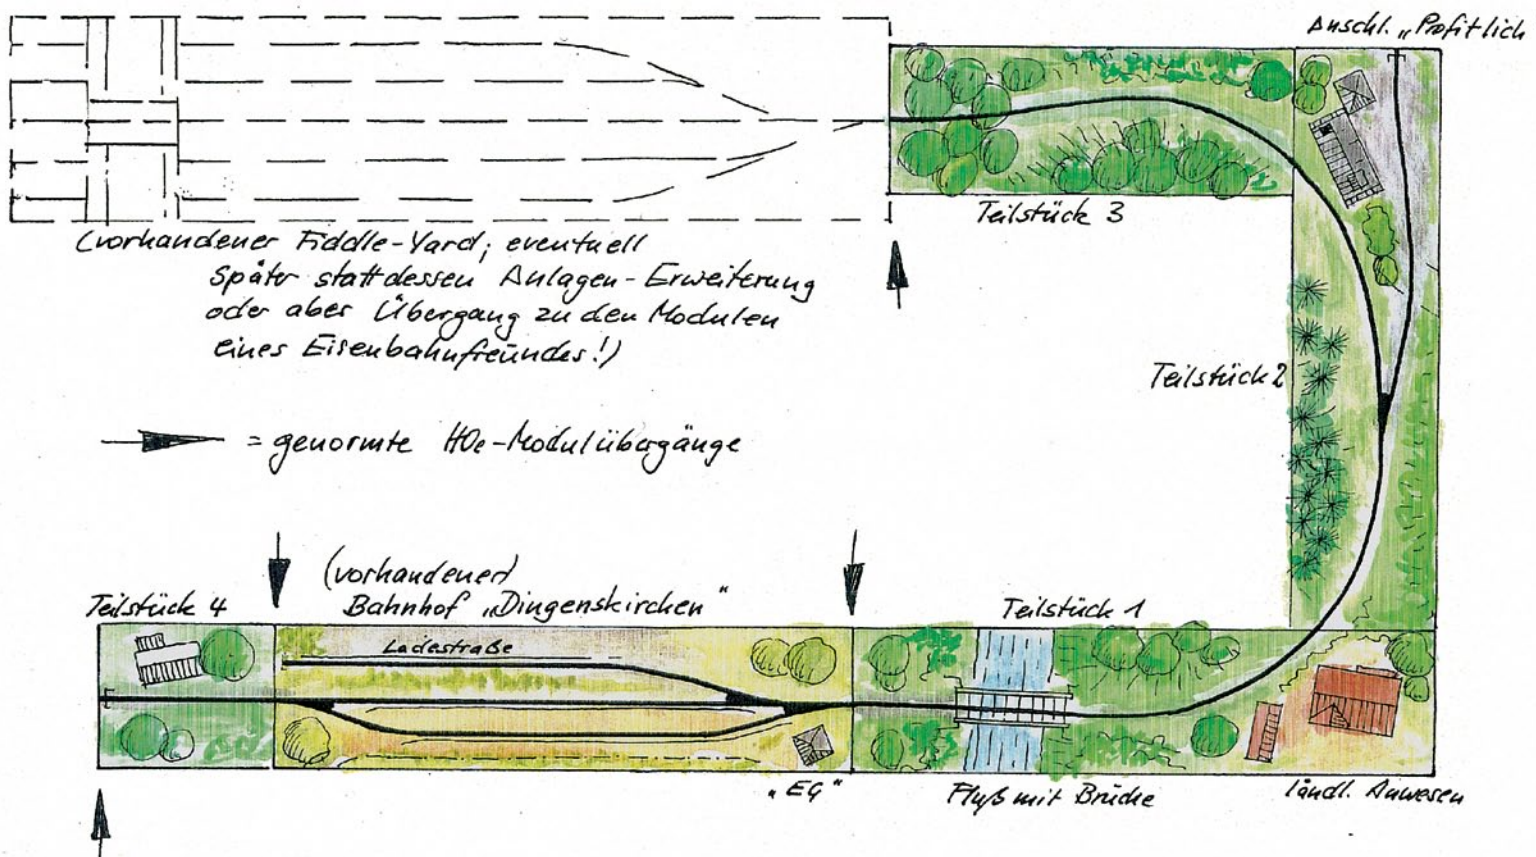 Anschl. „Profitlich
Teilstück 3
(vorhandener Fiddle-Yard; eventuell
später stattdessen Anlagen-Erweiterung
oder aber Übergang zu den Modulen
eines Eisenbahnfreundes!)
Teilstück 2
= genormte H0e-Modulübergänge
(vorhandener)
Bahnhof „Dingenskirchen"
Teilstück 4
Teilstück 1
Ladestraße
„EG"
Fluß mit Brücke
ländl. Anwesen